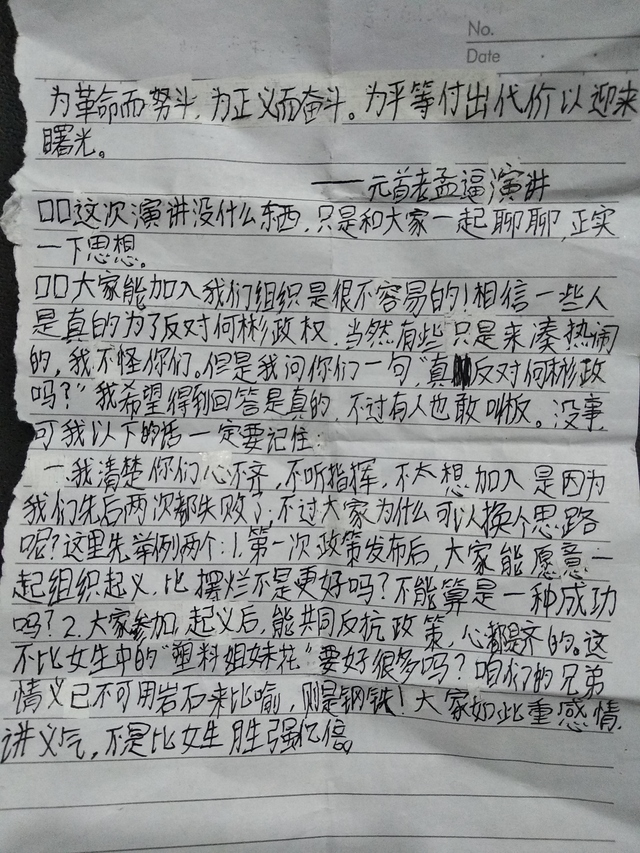 No.
Date
为革命而努斗，为正义而奋斗。为平等付出代价以迎来
曙光。
——元首老孟逼演讲
□□这次演讲没什么东西，只是和大家一起聊聊，正实
一下思想。
□□大家能加入我们组织是很不容易的！相信一些人
是真的为了反对何彬政权，当然有些只是来凑热闹
的，我不怪你们。但是我问你们一句，“真反对何彬政
吗？”我希望得到回答是真的，不过有人也敢叫板。没事，
可我以下的话一定要记住：
一.我清楚你们心不齐，不听指挥，不太想加入是因为
我们先后两次都失败了；不过大家为什么可以换个思路
呢？这里先举例两个：1.第一次政策发布后，大家能愿意一
起组织起义，比摆烂不是更好吗？不能算是一种成功
吗？2.大家参加起义后，能共同反抗政策，心都是齐的。这
不比女生中的“塑料姐妹花”要好很多吗？咱们的兄弟
情义已不可用岩石来比喻，则是钢铁！大家如此重感情，
讲义气，不是比女生胜强亿倍。